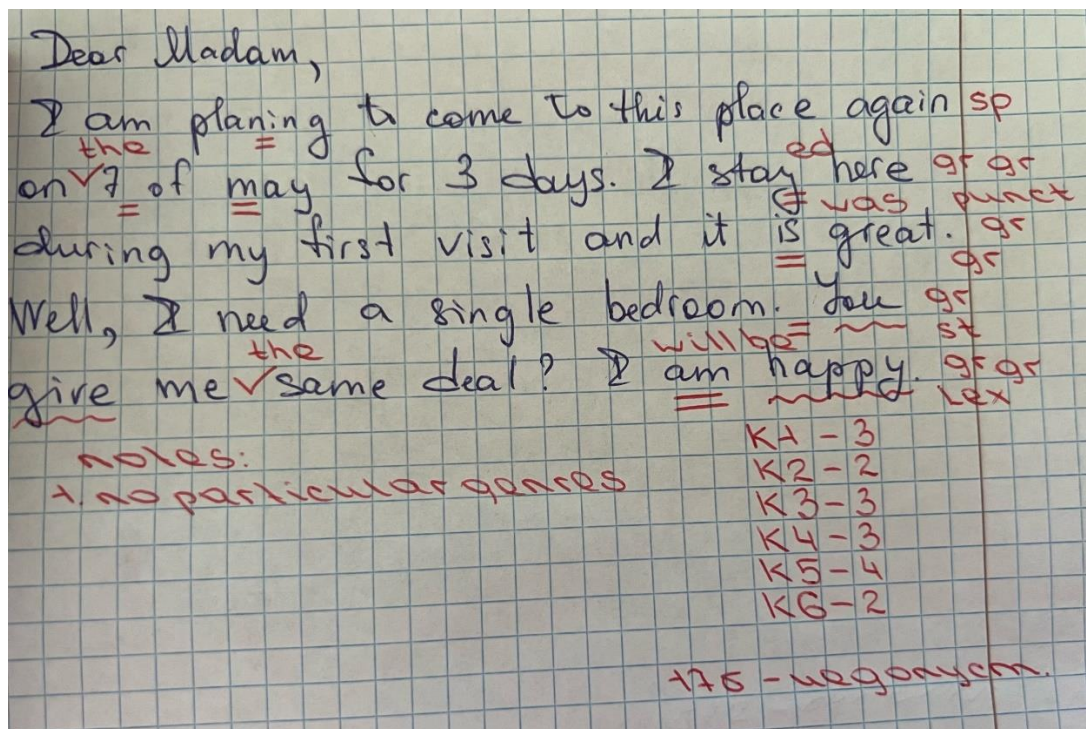 Dear Madam,
I am planing to come to this place again sp
the ed
on √ 7 of may for 3 days. I stay here gr gr
was punct
during my first visit and it is great. gr
gr
Well, I need a single bedroom. You gr
the will be st
give me √ same deal? I am happy. gr gr
Lex
notes:
1. no particular genres
K1 - 3
K2 - 2
K3 - 3
K4 - 3
K5 - 4
K6 - 2
17б -